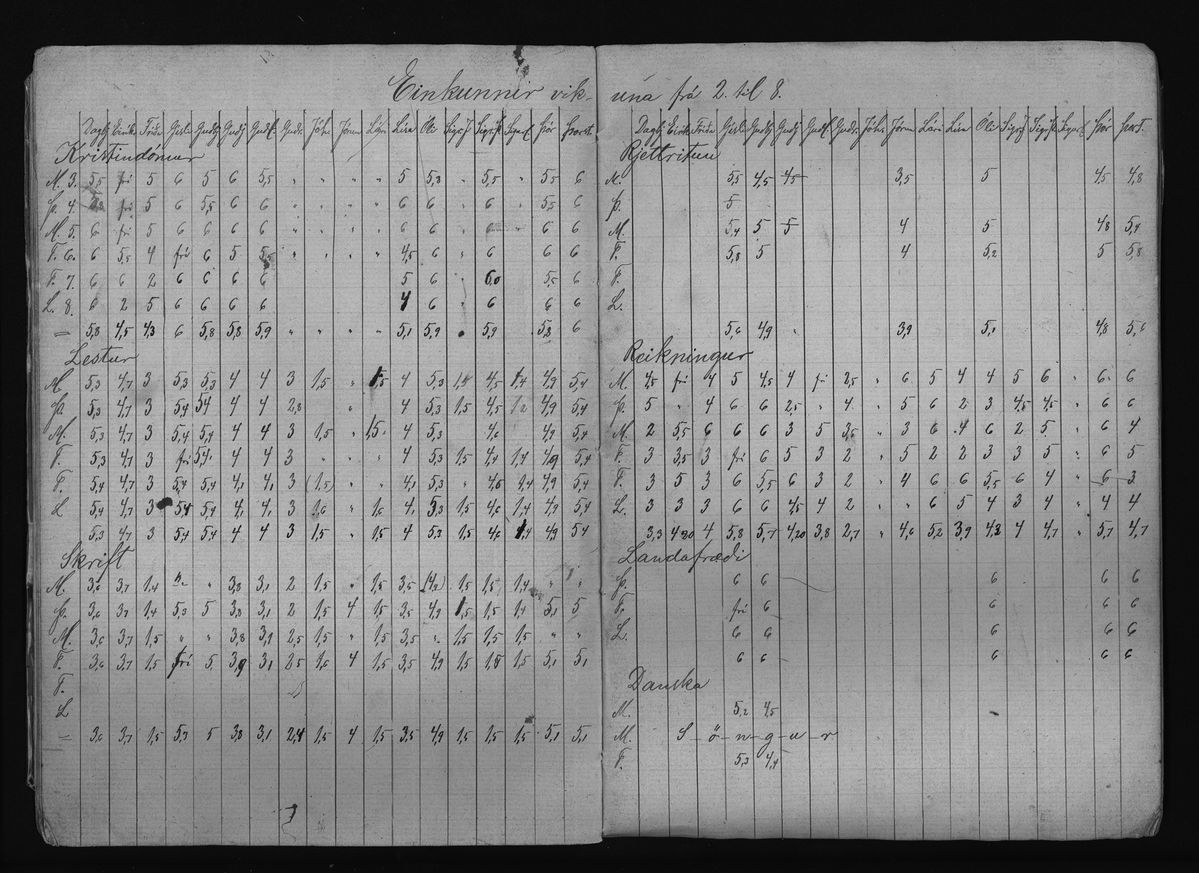 Einkunnir vikuna frá 2. til 8.
Dagbj Eirík Fríða Gísli Guðbj Guðj Guðl Guðr Jóhs Jórun Lára Lína Óli Sigríj Sigríst Sigurl Þór Þorst.
Kristindómur
M. 3. 5,5 frí 5 6 5 6 5,5 " " " " 5 5,8 " 5,5 " 5,5 6
Þ. 4. frí 5 6 5,5 6 6 " " " " 6 6 " 6 " 5,5 6
M. 5. 6 frí 5 6 6 6 6 " " " " 6 6 " " 6 6
F. 6. 6 5,5 4 frí 6 5 5,5 " " " " 4,5 6 " 6 6 6
F. 7. 6 6 2 6 6 6 6 5 6 " 6,0 5,5 6
L. 8. 6 2 5 6 6 6 6 4 6 " 6 6 6
= 5,8 4,5 4,3 6 5,8 5,8 5,9 " " " " 5,1 5,9 " 5,9 " 5,8 6
Lestur
M. 5,3 4,7 3 5,3 5,3 4 4 3 1,5 " 1,5 4 5,3 1,4 4,5 1,4 4,9 5,4
Þ. 5,3 4,7 3 5,4 5,4 4 4 2,8 " 4 5,3 1,5 4,5 1,2 4,9 5,4
M. 5,3 4,7 3 5,4 5,4 4 4 3 1,5 " 1,5 4 5,3 4,6 4,9 5,4
F. 5,3 4,7 3 frí 5,4 4 4 3 " " 4 5,3 1,5 4,4 1,4 4,9 5,4
F. 5,4 4,7 3 5,4 5,4 4,1 4,1 3 (1,5) " " 4,1 5,3 " 4,6 1,4 4,9 5,4
L 5,4 4,7 3 5,4 5,4 4,1 4,1 3 1,6 " 1,6 4,1 5,3 1,5 4,6 1,4 4,9 5,4
5,3 4,7 3 5,4 5,4 4 4 3 1,5 " 1,5 4 5,3 1,5 4,6 1,4 4,9 5,4
Skrift
M. 3,6 3,7 1,4 " 3,8 3,1 2 1,5 " 1,5 3,5 (4,9) 1,5 1,5 1,4 " "
Þ. 3,6 3,7 1,4 5,3 5 3,8 3,1 2 1,5 4 1,5 3,5 4,9 1,5 1,5 1,4 5,1 5
M. 3,6 3,7 1,5 " " 3,8 3,1 2,5 1,5 " 1,5 3,5 " 1,5 1,5 1,5 " "
F. 3,6 3,7 1,5 frí 5 3,9 3,1 2,5 1,6 4 1,5 3,5 4,9 1,5 1,5 1,5 5,1 5,1
F.
L
= 3,6 3,7 1,5 5,3 5 3,8 3,1 2,4 1,5 4 1,5 3,5 4,9 1,5 1,5 1,5 5,1 5,1
Dagbj Eirík Fríða Gísli Guðbj Guðj Guðl Guðr Jóhs Jórun Lára Lína Óli Sigríj Sigríst Sigurl Þór Þorst.
Rjettritun
M. 5,5 4,5 4,5 3,5 5 4,5 4,8
Þ. 5
M. 5,4 5 5 4 5 4,8 5,4
F. 5,8 5 4 5,2 5 5,8
F.
L.
5,6 4,9 " 3,9 5,1 4,8 5,6
Reikningur
M. 4,5 frí 4 5 4,5 4 frí 2,5 " 6 5 4 4 5 6 " 6 6
Þ. 5 " 4 6 6 2,5 " 4 " 5 6 2 3 4,5 4,5 " 6 6
M. 2 5,5 6 6 6 3 5 3,5 " 3 6 4 6 2 5 " 6 4
F. 3 3,5 3 frí 6 5 3 2 " 5 2 2 3 3 5 " 6 5
F. 3 5 3 6 5,5 6 3 2 " 4 6 6 5,5 6 4 " 6 3
L. 3 3 3 6 6 4,5 4 2 " 6 5 4 3 4 " 4 4
3,3 4,20 4 5,8 5,7 4,20 3,8 2,7 " 4,6 5,2 3,9 4,2 4 4,7 " 5,7 4,7
Landafræði
Þ. 6 6 6 6 6
F. frí 6 6 6 6
L. 6 6 6 6 6
6 6 6 6 6
Danska
M. 5,2 4,5
M. S-ö-n-g-u-r
F. 5,3 4,4